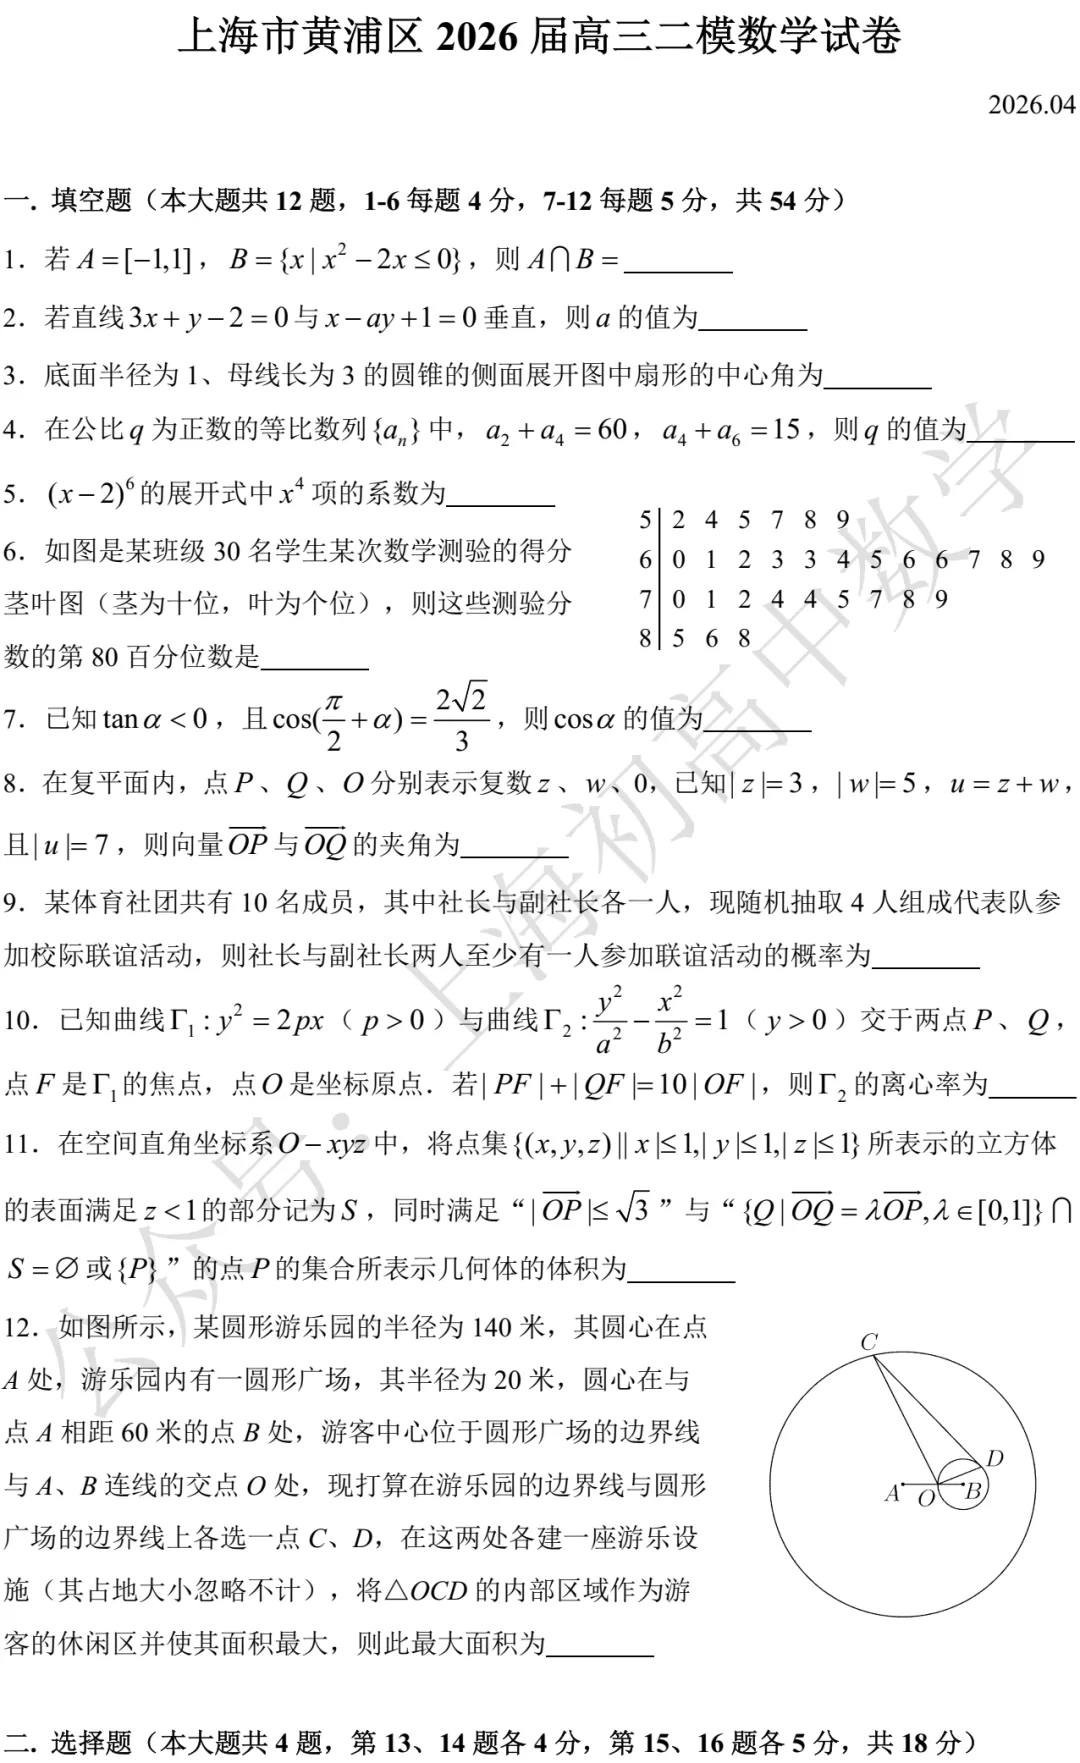 上海市黄浦区 2026 届高三二模数学试卷
2026.04
一. 填空题（本大题共 12 题，1-6 每题 4 分，7-12 每题 5 分，共 54 分）
1．若 A = [−1,1]，B = {x | x² − 2x ≤ 0}，则 A⋂B = ________
2．若直线 3x + y − 2 = 0 与 x − ay + 1 = 0 垂直，则 a 的值为________
3．底面半径为 1、母线长为 3 的圆锥的侧面展开图中扇形的中心角为________
4．在公比 q 为正数的等比数列 {aₙ} 中，a₂ + a₄ = 60，a₄ + a₆ = 15，则 q 的值为________
5．(x − 2)⁶ 的展开式中 x⁴ 项的系数为________
6．如图是某班级 30 名学生某次数学测验的得分
茎叶图（茎为十位，叶为个位），则这些测验分
数的第 80 百分位数是________
5 | 2 4 5 7 8 9
6 | 0 1 2 3 3 4 5 6 6 7 8 9
7 | 0 1 2 4 4 5 7 8 9
8 | 5 6 8
7．已知 tan α < 0，且 cos(π/2 + α) = 2√2/3，则 cos α 的值为________
8．在复平面内，点 P、Q、O 分别表示复数 z、w、0，已知 | z |= 3，| w |= 5，u = z + w，
且 | u |= 7，则向量 →OP 与 →OQ 的夹角为________
9．某体育社团共有 10 名成员，其中社长与副社长各一人，现随机抽取 4 人组成代表队参
加校际联谊活动，则社长与副社长两人至少有一人参加联谊活动的概率为________
10．已知曲线 Γ₁ : y² = 2px（p > 0）与曲线 Γ₂ : y²/a² − x²/b² = 1（y > 0）交于两点 P、Q，
点 F 是 Γ₁ 的焦点，点 O 是坐标原点．若 | PF | + | QF |= 10 | OF |，则 Γ₂ 的离心率为________
11．在空间直角坐标系 O − xyz 中，将点集 {(x, y, z) || x |≤ 1,| y |≤ 1,| z |≤ 1} 所表示的立方体
的表面满足 z < 1 的部分记为 S，同时满足“| →OP |≤ √3”与“{Q | →OQ = λ→OP, λ ∈ [0,1]} ⋂
S = ∅ 或 {P}”的点 P 的集合所表示几何体的体积为________
12．如图所示，某圆形游乐园的半径为 140 米，其圆心在点
A 处，游乐园内有一圆形广场，其半径为 20 米，圆心在与
点 A 相距 60 米的点 B 处，游客中心位于圆形广场的边界线
与 A、B 连线的交点 O 处，现打算在游乐园的边界线与圆形
广场的边界线上各选一点 C、D，在这两处各建一座游乐设
施（其占地大小忽略不计），将△OCD 的内部区域作为游
客的休闲区并使其面积最大，则此最大面积为________
C
D
A
O
B
二. 选择题（本大题共 4 题，第 13、14 题各 4 分，第 15、16 题各 5 分，共 18 分）
公众号：上海初高中数学